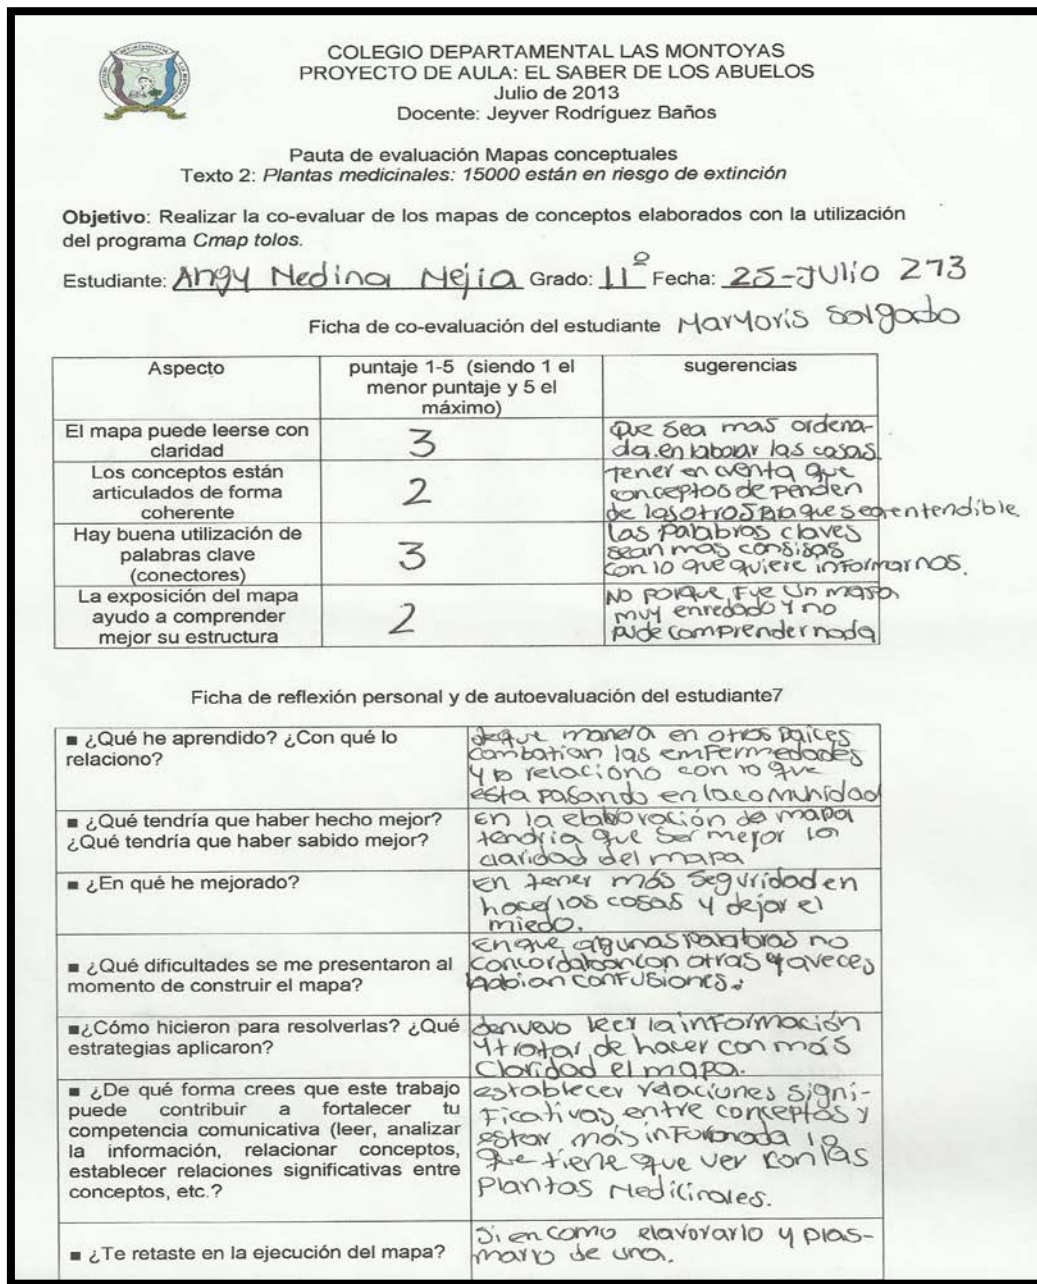 COLEGIO DEPARTAMENTAL LAS MONTOYAS
PROYECTO DE AULA: EL SABER DE LOS ABUELOS
Julio de 2013
Docente: Jeyver Rodríguez Baños
Pauta de evaluación Mapas conceptuales
Texto 2: Plantas medicinales: 15000 están en riesgo de extinción
Objetivo: Realizar la co-evaluar de los mapas de conceptos elaborados con la utilización
del programa Cmap tolos.
Estudiante: Angy Medina Mejia Grado: 11º Fecha: 25-JUlio 273
Ficha de co-evaluación del estudiante Maryoris Salgado
Aspecto
puntaje 1-5 (siendo 1 el
menor puntaje y 5 el
máximo)
sugerencias
El mapa puede leerse con
claridad
3
Que sea mas ordena-
da. en laborar las cosas
Los conceptos están
articulados de forma
coherente
2
tener en cuenta que
conceptos dependen
de las otros pa que sea entendible
Hay buena utilización de
palabras clave
(conectores)
3
Las palabras claves
sean mas consisas
con lo que quiere informarnos.
La exposición del mapa
ayudo a comprender
mejor su estructura
2
No porque fue un mapa
muy enredado y no
pude comprender nada
Ficha de reflexión personal y de autoevaluación del estudiante7
■ ¿Qué he aprendido? ¿Con qué lo
relaciono?
deque manera en otros paices
combatian las emfermedades
y lo relaciono con lo que
esta pasando en la comunidad
■ ¿Qué tendría que haber hecho mejor?
¿Qué tendría que haber sabido mejor?
En la elaboración de mapa
tendria que ser mejor la
claridad del mapa
■ ¿En qué he mejorado?
En tener más seguridad en
hacer las cosas y dejar el
miedo.
■ ¿Qué dificultades se me presentaron al
momento de construir el mapa?
En que algunas palabras no
concordaban con otras y aveces
habian confusiones.
■¿Cómo hicieron para resolverlas? ¿Qué
estrategias aplicaron?
denuevo leer la información
y tratar de hacer con más
claridad el mapa.
■ ¿De qué forma crees que este trabajo
puede contribuir a fortalecer tu
competencia comunicativa (leer, analizar
la información, relacionar conceptos,
establecer relaciones significativas entre
conceptos, etc.?
establecer relaciones signi-
ficativas entre conceptos y
estar más informada lo
que tiene que ver con las
Plantas Medicinales.
■ ¿Te retaste en la ejecución del mapa?
Si en como elavorarlo y plas-
marlo de una.